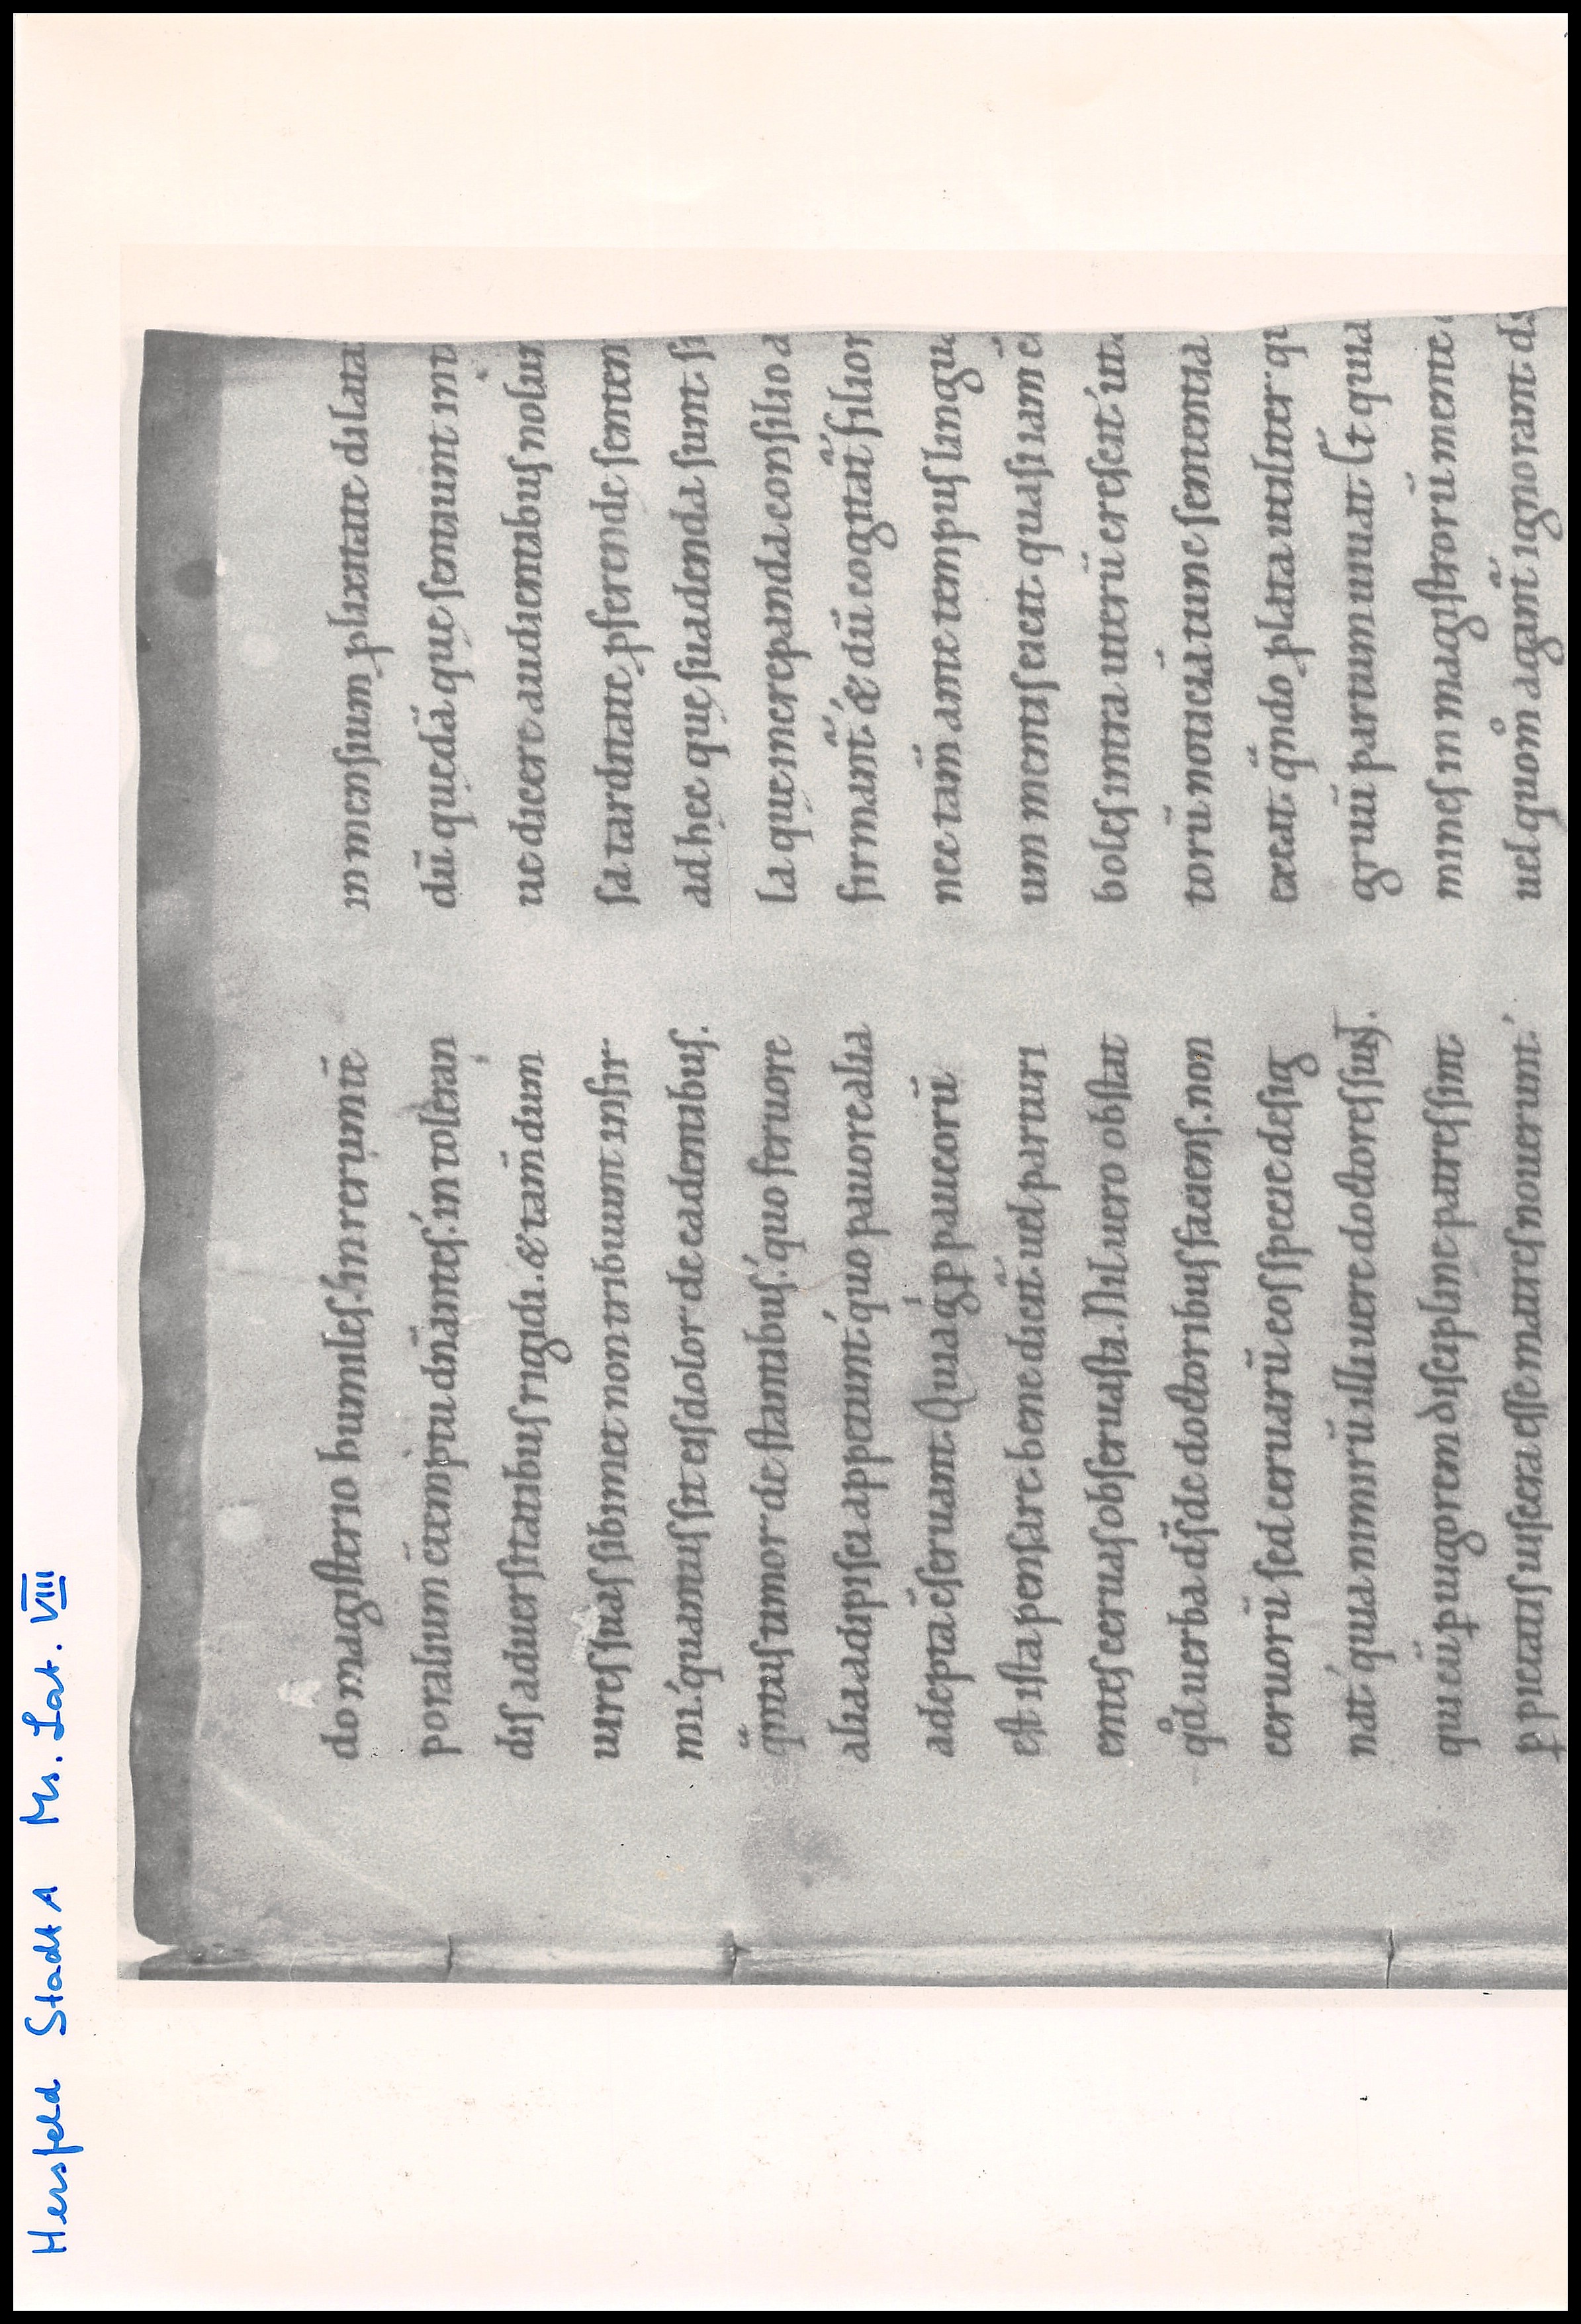 Hersfeld StadtA Ms. Lat. VIII
do magisterio humiles. in rerum tē
poralium cōtemptu dn̄antes. in toleran
dis aduersitatibus rigidi. & tam̄ dum
uires suas sibimet non tribuunt infir
mi. quamuis sit eis dolor de cadentibus.
qͣmuis tumor de stantibus. quo feruore
alia adipisci appetunt. quo pauore alia
adepta cōseruant. Quia gͥ paucorū
est ista pensare bene dicͣit. uel parturi
entes ceruas obseruasti. Nil uero obstat
qd̊ uerba ds̄ de doctoribus faciens. non
ceruorū sed ceruarū eos specie desig
nat. quia nimirū illi uere doctores sunt.
qui cū ꝑ uigorem discipline patres sint.
ꝑ pietatis uiscera esse matres nouerunt.
in mensium ꝓlixitate dilata
dū quędā quę sentiunt inu
ue dicere audientibus nolun
sa tarditate ꝓferendę senten
ad hęc quę suadenda sunt. si
la quę increpanda consilio a
firmaͣnt. & dū cogitaͣt filior
nec tam̄ ante tempus lingu
um mentis eicit. quasi iam c
boles intra uterū crescit. ut
torū noticiā tunc sententia
exeat. qn̄do ꝓlata utiliter. qu
gruū partum uiuat. Et quia
mines in magistrorū mente
uel quom̊ agaͣnt ignorant. ds